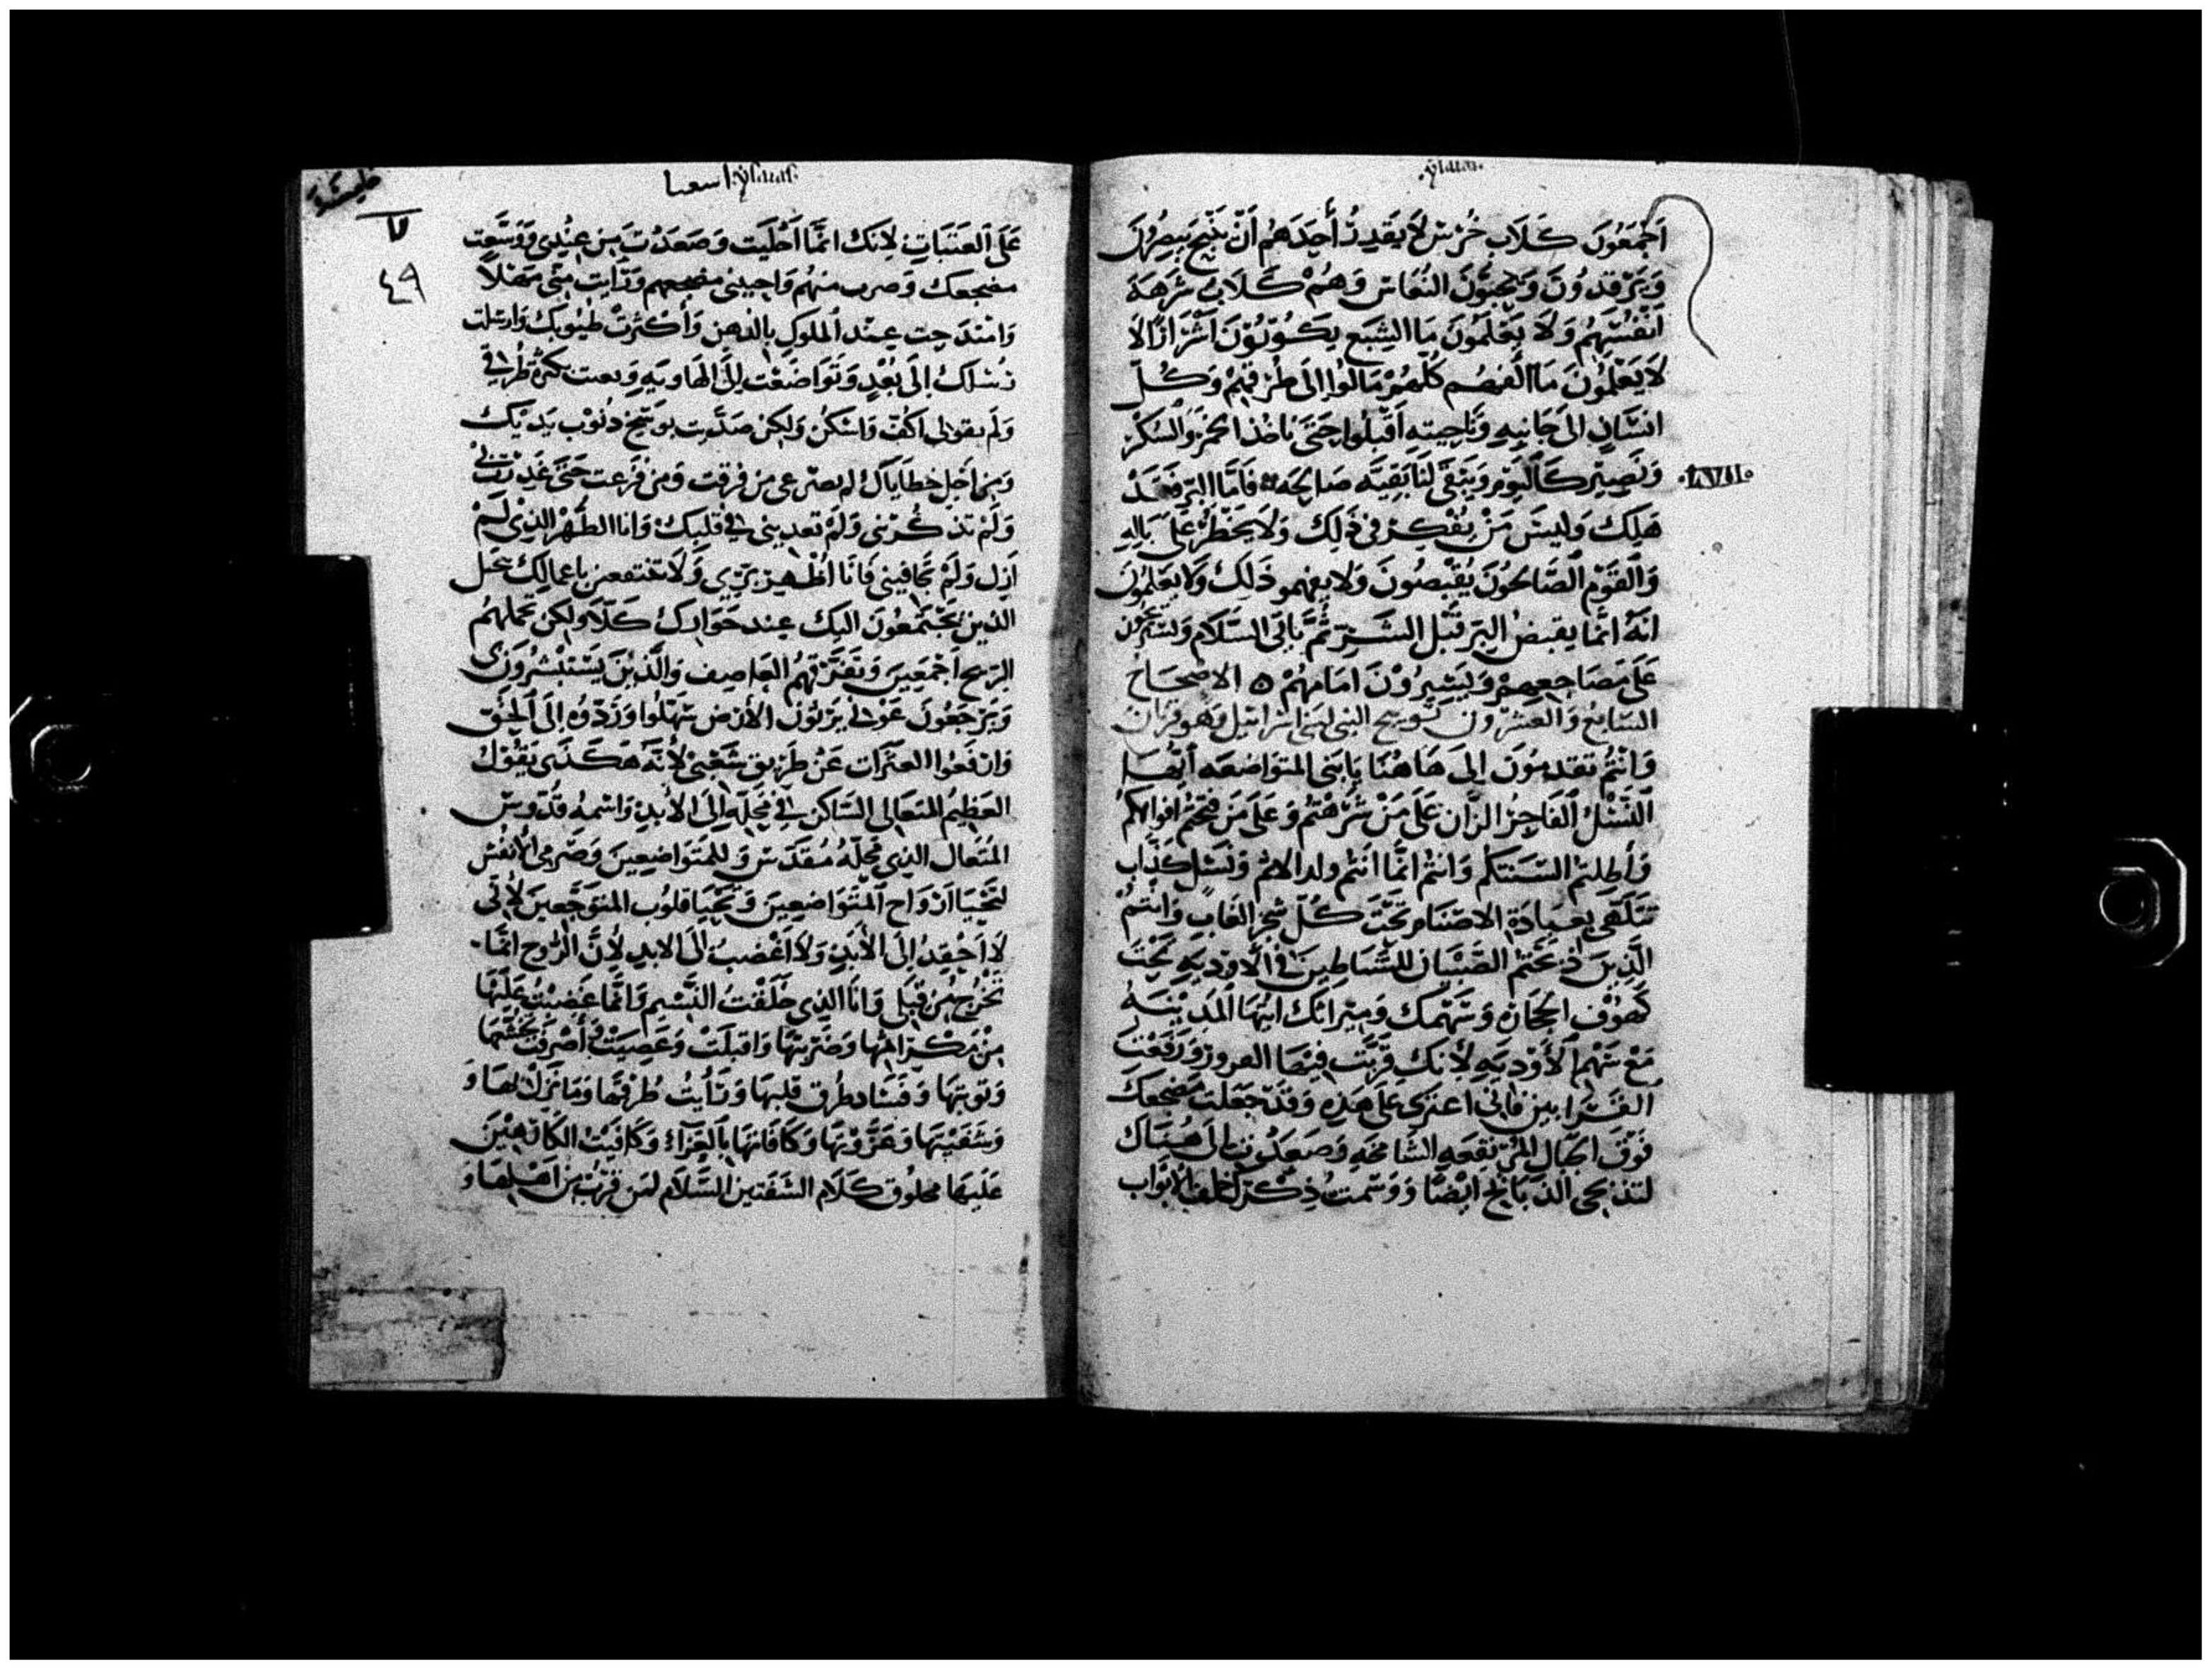 اجمعون كلاب خرس لا يقدر أحدهم أن ينبح يبصرون
ويرقدون ويحبون النعاس وهم كلاب شرهة
أنفسهم ولا يعلمون ما الشبع يكونون أشرارا لا
لا يعلمون ما الفهم كلهم مالوا إلى طرقهم وكل
انسان الى جانبه وناحيته أقبلوا حتى ناخذ الخمر والسكر
ونصير كاليوم ويبقى لنا بقيه صالحه فاما البر فقد
هلك وليس من يفكر في ذلك ولا يخطر على باله
والقوم الصالحون يقبضون ولا يفهمو ذلك ولا يعلمون
انه انما يقبض البر قبل الشر ثم ياتي السلام
على مضاجعهم ويسيرون امامهم ه الاصحاح
السابع والعشرون توبيخ النبي لبني اسرائيل وهو قربان
وانتم تقدمون الى هاهنا يا بني المتواضعه أيها
النسل الفاجر الزان على من شرهتم وعلى من فتحتم افواهكم
وأطلتم السنتكم وانتم انما انتم ولد الاثم ونسل كذاب
تتلهى بعبادة الاصنام تحت كل شجر الغاب وانتم
الذين ذبحتم الصبيان للشياطين في الاوديه تحت
كهوف الحجارة وسهمك وميراثك ايتها المدينه
مع سهم الأوديه لأنك قربت فيها ورفعت
القرابين فاني اعتزى على هذه وقد جعلت مضجعك
فوق الجبال المرتفعه الشامخه وصعدت الى هناك
لتذبحي الذبايح ايضا ورسمت ذكرك خلف الابواب
اسعيا
٧
٤٩
على العتبات لانك انما أخليت وصعدت من عندي ووسعت
مضجعك منهم واحببتي مضجعهم ورأيت متى
عند الملوك بالدهن وأكثرت طيوبك وارسلت
رسلك إلى بعد وتواضعت إلى الهاويه بكثرة طرقي
ولم تقولي أكف واسكن ولكن بتوبيخ ذنوب يديك
ومن اجل خطاياك لم من فرقت ومن فزعت حتى غدرت بي
ولم تذكرني ولم تعديني في قلبك وانا الطهر الذي لم
ازل ولم تخافيني فانا أظهر بري ولا تنتفعين باعمالك
الذين يجتمعون اليك عند كلا ولكن تحملهم
الريح اجمعين وتفرقهم العاصف والذين يستبشرون بي
ويرجعون يرثون الأرض سهلوا وردوه إلى الحق
وارفعوا العثرات عن طريق شعبي لأنه هكذى يقول
العظيم المتعالي الساكن في محله إلى الأبد واسمه قدوس
المتعال الذي محله مقدس وللمتواضعين الأنفس
لتحيا ارواح المتواضعين وتحيا قلوب المتوجعين لأني
لا احقد إلى الأبد ولا اغضب الى الابد لأن الروح انما
تخرج من قبلي وانا الذي خلقت النسيم وانما غضبت عليها
من وضربتها واقبلت وغضبت
قلبها ورأيت طرقها
وشفيتها وعزيتها وكافاتها بالعزاء وكافيت
عليها مخلوق كلام الشفتين السلام لمن قرب من اهلها و